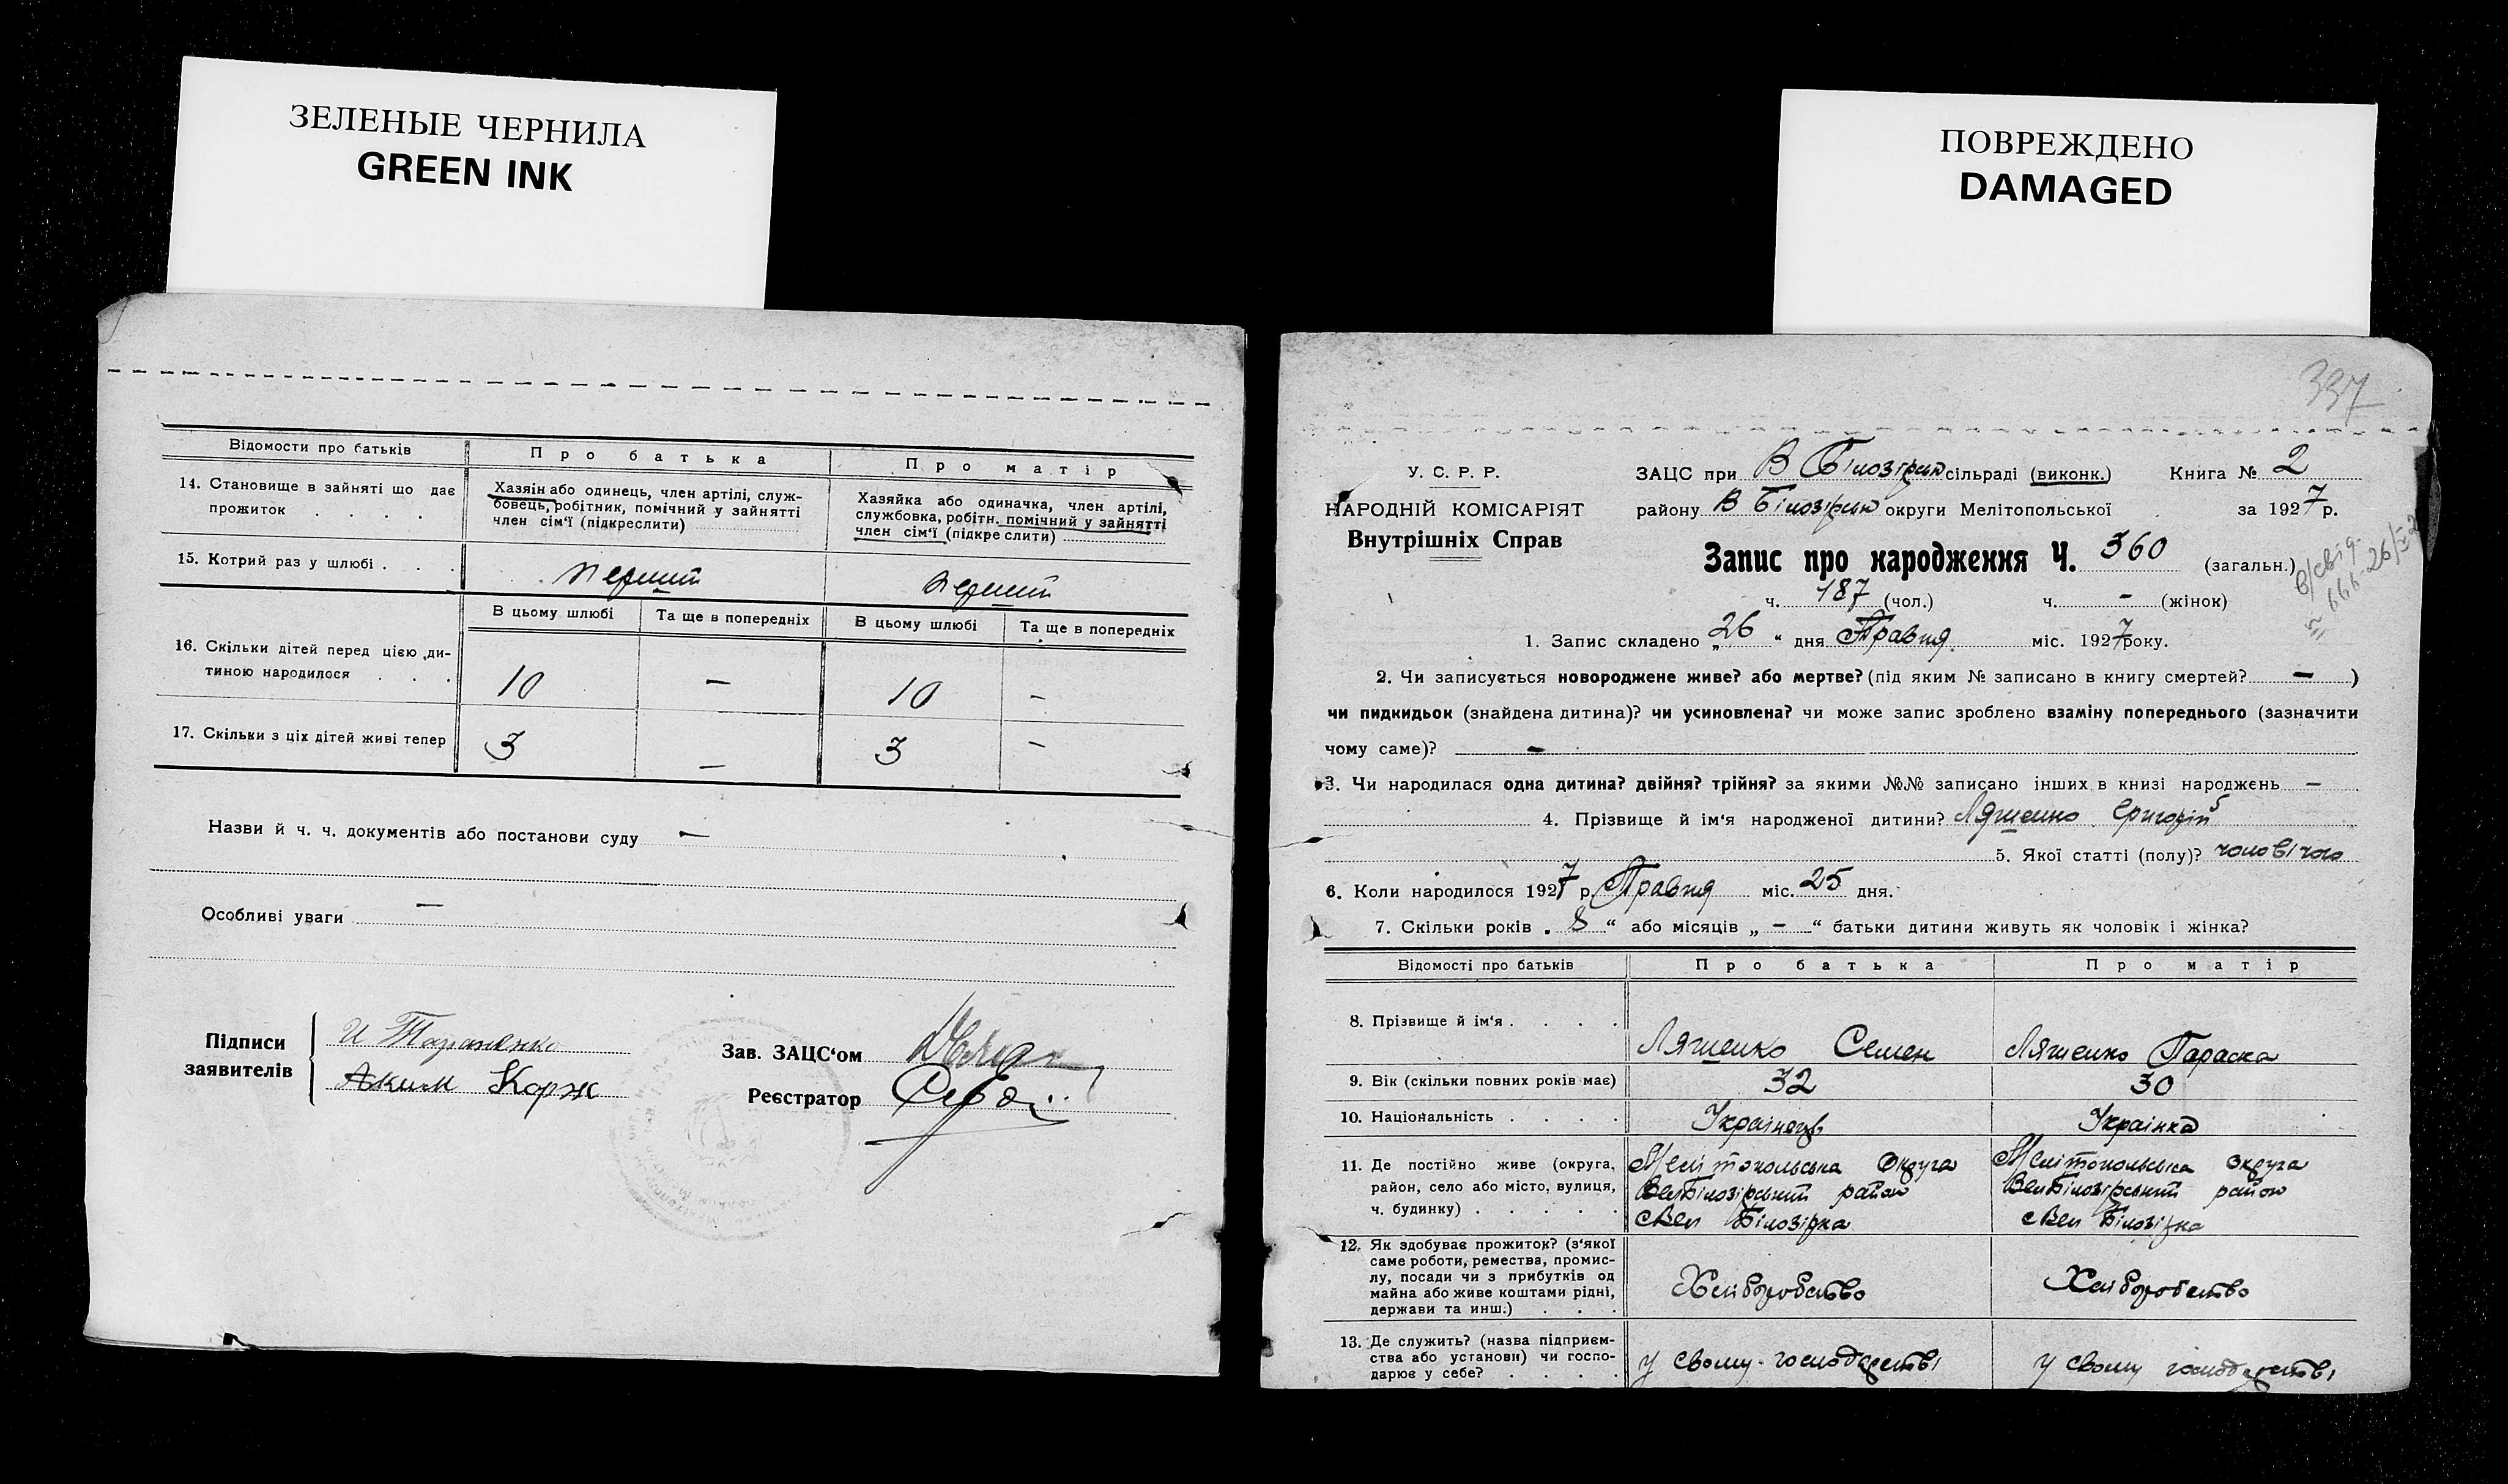 ЗЕЛЕНЫЕ ЧЕРНИЛА
GREEN INK
Відомости про батьків
Про батька
Про матір
14. Становище в зайняті що дає
прожиток . . . .
Хазяїн або одинець, член артілі, служ-
бовець, робітник, помічний у зайнятті
член сім'ї (підкреслити)
Хазяйка або одиначка, член артілі,
службовка, робітн. помічний у зайнятті
член сім'ї (підкреслити)
15. Котрий раз у шлюбі . . .
перший
перший
В цьому шлюбі
Та ще в попередніх
В цьому шлюбі
Та ще в попередніх
16. Скільки дітей перед цією ди-
тиною народилося . . .
10
—
10
—
17. Скільки з ціх дітей живі тепер
3
—
3
—
Назви й ч. ч. документів або постанови суду —
Особливі уваги —
Підписи
заявителів
И Тараненко
Аким Корж
Зав. ЗАЦС'ом
Реєстратор
ПОВРЕЖДЕНО
DAMAGED
337
У. С. Р. Р.
НАРОДНІЙ КОМІСАРІЯТ
Внутрішніх Справ
ЗАЦС при В Білозірск сільраді (виконк.) Книга № 2
району В Білозірск округи Мелітопольської за 1927 р.
Запис про народження Ч. 360 (загальн.)
ч. 187 (чол.) ч. - (жінок)
1. Запис складено „26“ дня Травня міс. 1927 року.
2. Чи записується новороджене живе? або мертве? (під яким № записано в книгу смертей? — )
чи пидкидьок (знайдена дитина)? чи усиновлена? чи може запис зроблено взаміну попереднього (зазначити
чому саме)? —
3. Чи народилася одна дитина? двійня? трійня? за якими №№ записано інших в книзі народжень —
4. Прізвище й ім'я народженої дитини? Ляшенко Григорій
5. Якої статті (полу)? чоловічого
6. Коли народилося 1927 р. Травня міс. 25 дня.
7. Скільки років „ 8 “ або місяців „ — “ батьки дитини живуть як чоловік і жінка?
Відомості про батьків
Про батька
Про матір
8. Прізвище й ім'я . . . .
Ляшенко Семен
Ляшенко Параска
9. Вік (скільки повних років має)
32
30
10. Національність . . . .
Українець
Українка
11. Де постійно живе (округа,
район, село або місто, вулиця,
ч. будинку) . . . . .
Мелітопольська округа
ВелБілозірський район
с Вел Білозірка
Мелітопольська округа
ВелБілозірський район
с Вел Білозірка
12. Як здобуває прожиток? (з'якої
саме роботи, ремества, промис-
лу, посади чи з прибутків од
майна або живе коштами рідні,
держави та инш.) . . .
Хліборобство
Хліборобство
13. Де служить? (назва підприєм-
ства або установи) чи госпо-
дарює у себе? . . . .
у свому господарстві
у свому господарстві